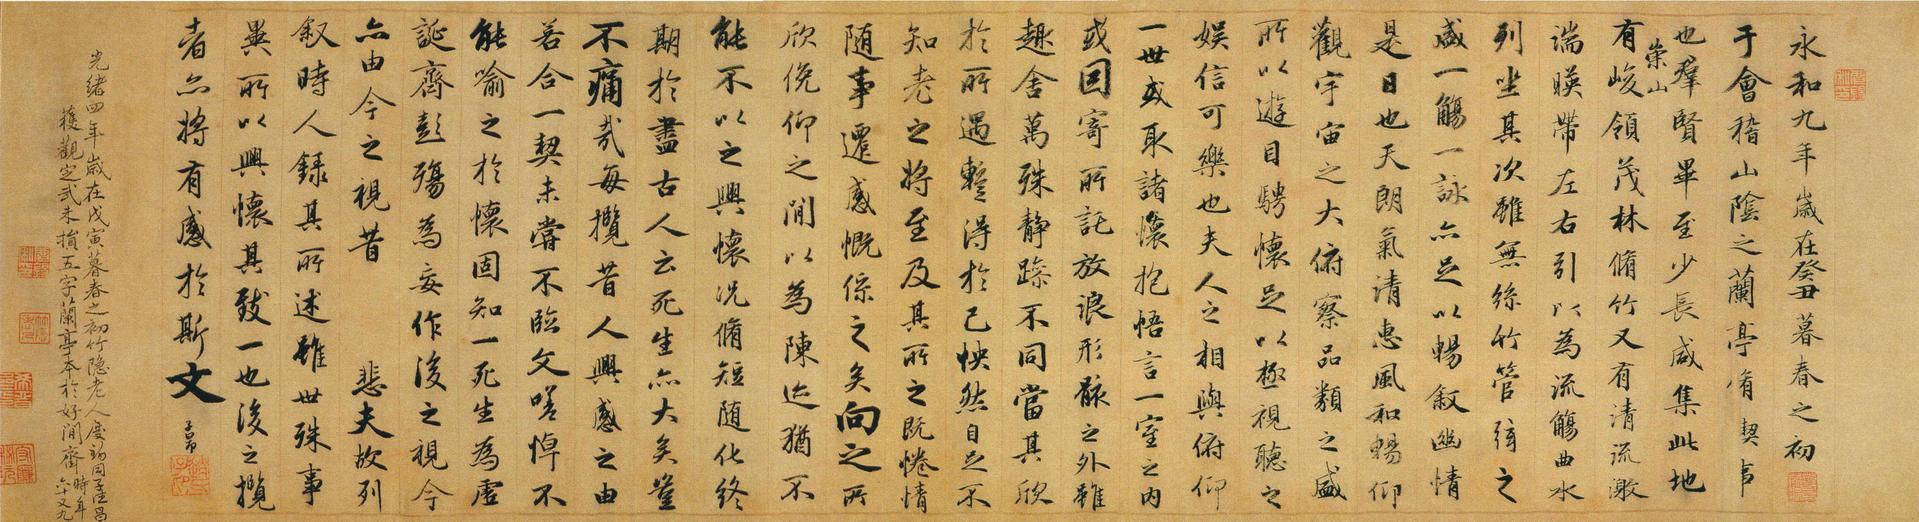 永和九年歲在癸丑暮春之初
于會稽山陰之蘭亭脩禊事
也羣賢畢至少長咸集此地
崇山
有峻領茂林脩竹又有清流激
湍暎帶左右引以為流觴曲水
列坐其次雖無絲竹管弦之
盛一觴一詠亦足以暢敘幽情
是日也天朗氣清惠風和暢仰
觀宇宙之大俯察品類之盛
所以遊目騁懷足以極視聽之
娛信可樂也夫人之相與俯仰
一世或取諸懷抱悟言一室之內
或因寄所託放浪形骸之外雖
趣舍萬殊静躁不同當其欣
於所遇蹔得於己怏然自足不
知老之將至及其所之既惓情
随事遷感慨係之矣向之所
欣俛仰之閒以為陳迹猶不
能不以之興懷況脩短随化終
期於盡古人云死生亦大矣豈
不痛哉每攬昔人興感之由
若合一契未嘗不臨文嗟悼不
能喻之於懷固知一死生為虛
誕齊彭殤為妄作後之視今
亦由今之視昔 悲夫故列
叙時人錄其所述雖世殊事
異所以興懷其致一也後之攬
者亦將有感於斯文 子昂
光緒四年歲在戊寅暮春之初竹隐老人度均同
獲觀定武未損五字蘭亭本於好閒齋時年
六十又九